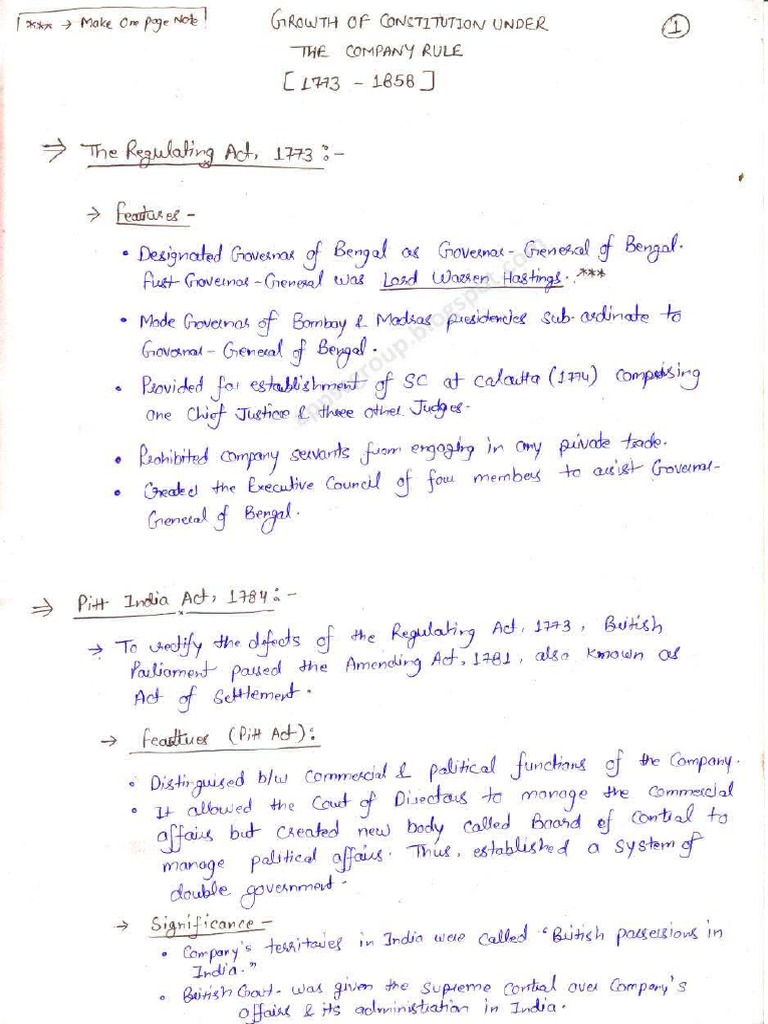 *** → Make One page Note!
GROWTH OF CONSTITUTION UNDER
THE COMPANY RULE
[1773 - 1858]
1
⇒ The Regulating Act, 1773 :-
→ Features -
• Designated Governor of Bengal as Governor-General of Bengal.
First Governor-General was Lord Warren Hastings. ***
• Made Governor of Bombay & Madras presidencies sub-ordinate to
Governor-General of Bengal.
• Provided for establishment of SC at Calcutta (1774) comprising
one Chief Justice & three other Judges.
• Prohibited company servants from engaging in any private trade.
• Created the Executive Council of four members to assist Governor-
General of Bengal.
⇒ Pitt India Act, 1784 :-
→ To rectify the defects of the Regulating Act, 1773, British
Parliament passed the Amending Act, 1781, also known as
Act of Settlement.
→ Features (Pitt Act):
• Distinguised b/w commercial & political functions of the Company.
• It allowed the Court of Directors to manage the commercial
affairs but created new body called Board of control to
manage political affairs. Thus, established a system of
double government.
→ Significance -
• Company's territories in India were called "British possessions in
India."
• British Govt. was given the supreme control over Company's
affairs & its administration in India.